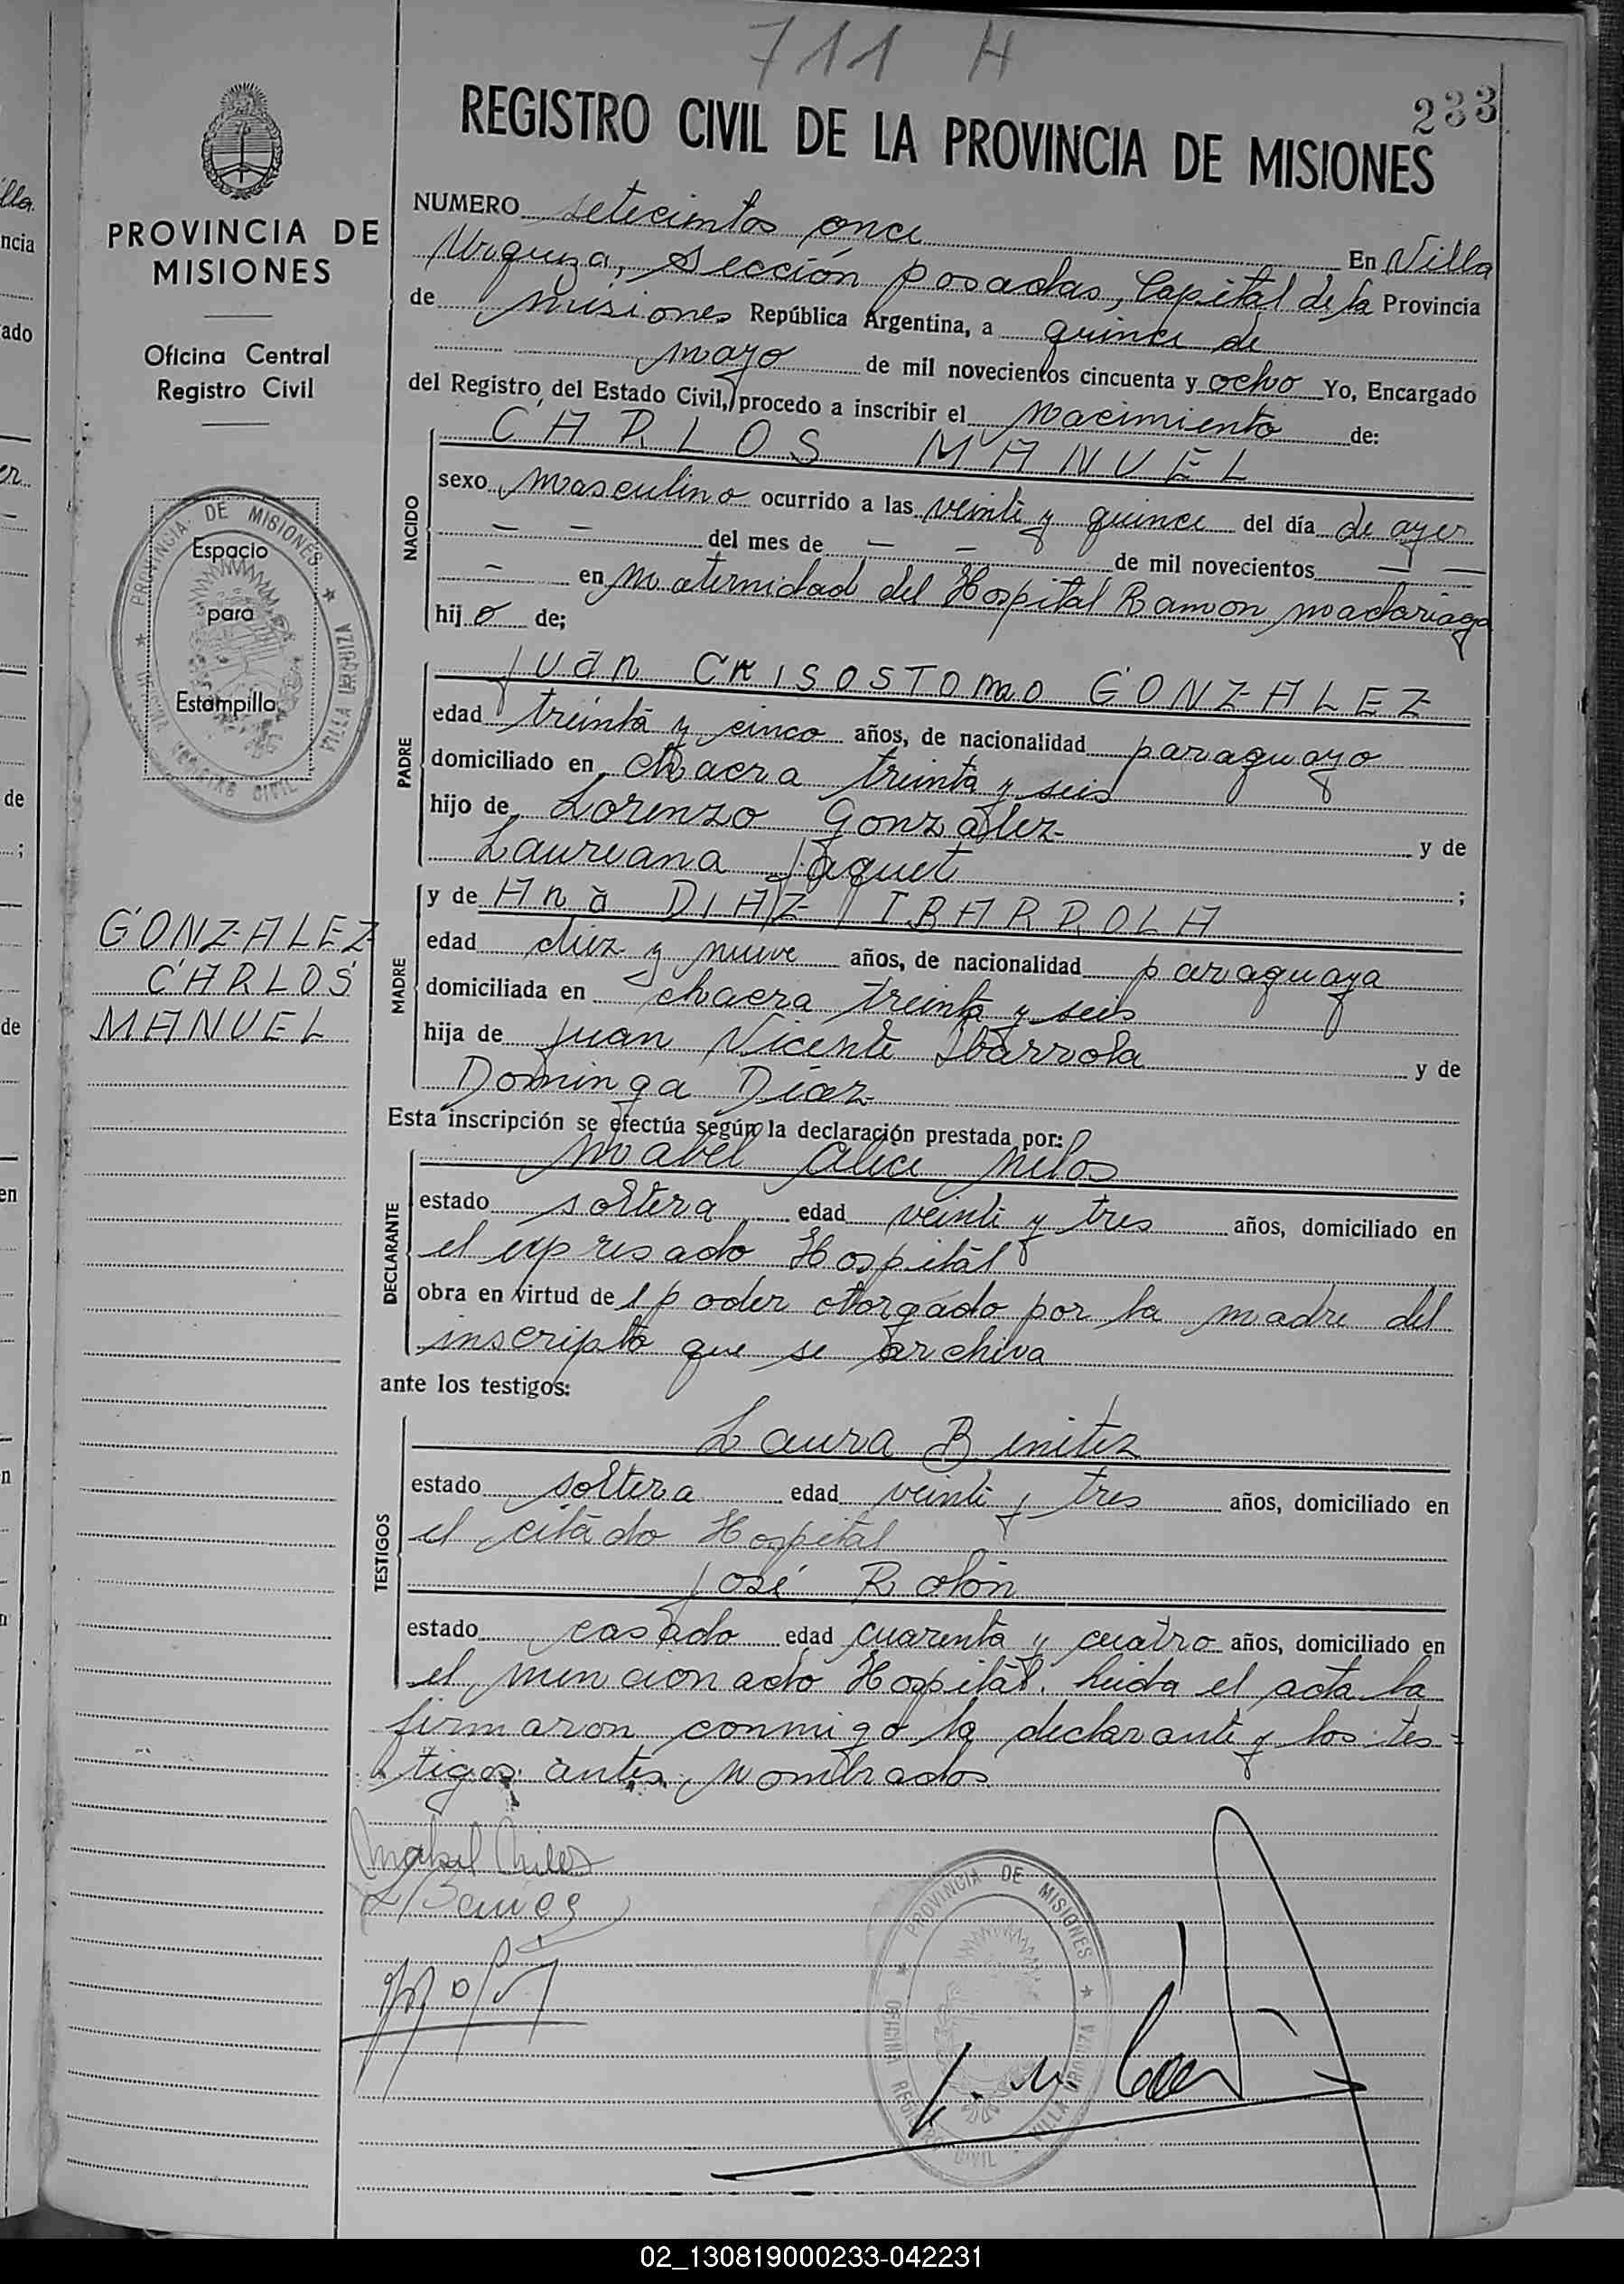 711 H
233
REGISTRO CIVIL DE LA PROVINCIA DE MISIONES
PROVINCIA DE
MISIONES
Oficina Central
Registro Civil
PROVINCIA DE MISIONES
VILLA URQUIZA
REGISTRO CIVIL
Espacio
para
Estampilla
GONZALEZ
CARLOS
MANUEL
NUMERO setecientos once En Villa
Urquiza, Sección posadas, Capital de la Provincia
de misiones República Argentina, a quince de
mayo de mil novecientos cincuenta y ocho Yo, Encargado
del Registro del Estado Civil, procedo a inscribir el Nacimiento de:
NACIDO
CARLOS MANUEL
sexo masculino ocurrido a las veinte y quince del día de ayer
— — del mes de — — de mil novecientos — —
— en maternidad del Hospital Ramon madariaga
hijo de;
PADRE
Juan CRISOSTOmo GONZALEZ
edad treinta y cinco años, de nacionalidad paraguayo
domiciliado en chacra treinta y seis
hijo de Lorenzo Gonzalez y de
Laureana Jaquet ;
MADRE
y de Ana DIAZ IBARROLA
edad diez y nueve años, de nacionalidad paraguaya
domiciliada en chacra treinta y seis
hija de Juan Vicente Ibarrola y de
Dominga Diaz
Esta inscripción se efectúa según la declaración prestada por:
DECLARANTE
mabel alice
estado soltera edad veinte y tres años, domiciliado en
el expresado Hospital
obra en virtud del poder otorgado por la madre del
inscripto que se archiva
ante los testigos:
TESTIGOS
Laura Benitez
estado soltera edad veinte y tres años, domiciliado en
el citado Hospital
José Rolón
estado casado edad cuarenta y cuatro años, domiciliado en
el mencionado Hospital. Leida el acta la
firmaron conmigo la declarante y los tes-
tigos antes nombrados
Mabel
PROVINCIA DE MISIONES
OFICINA REGISTRO CIVIL VILLA URQUIZA
02_130819000233-042231